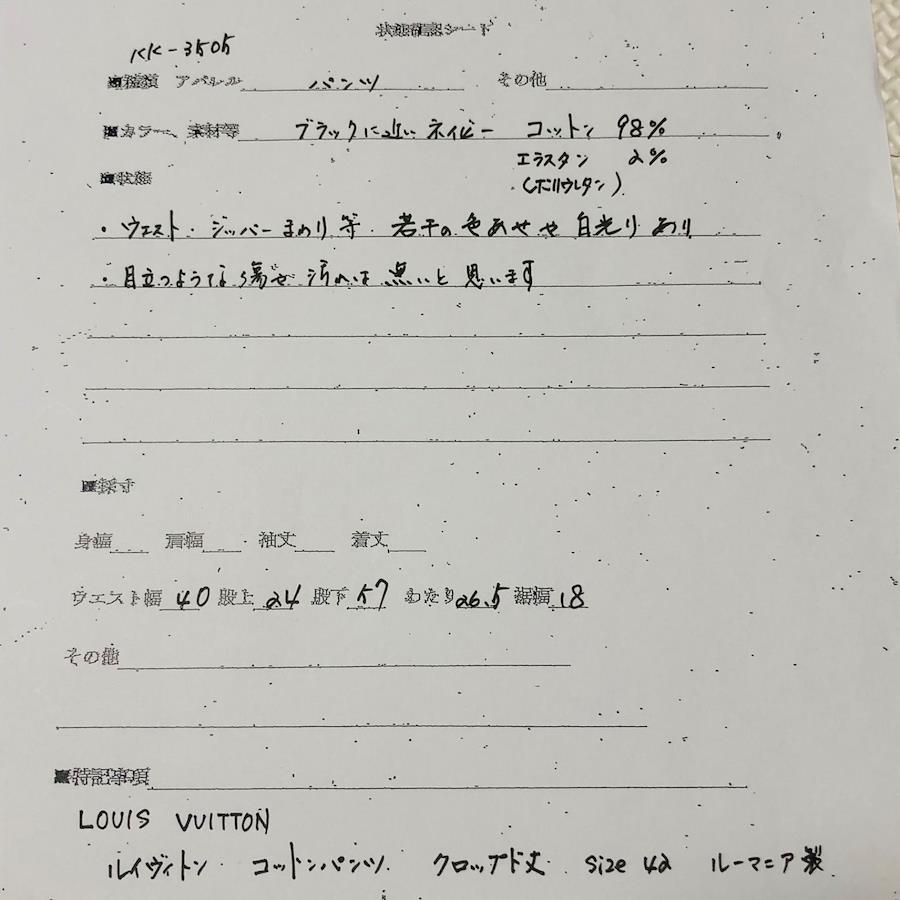 状態確認シート
KK-3505
■種類 アパレル パンツ その他
■カラー、素材等 ブラックに近いネイビー コットン 98%
エラスタン 2%
(ポリウレタン)
■状態
・ウエスト・ジッパーまわり等 若干の色あせや白光りあり
・目立つような傷や汚れは無いと思います
■採寸
身幅 肩幅 袖丈 着丈
ウエスト幅 40 股上 24 股下 57 わたり 26.5 裾幅 18
その他
■特記事項
LOUIS VUITTON
ルイヴィトン コットンパンツ クロップド丈 size 42 ルーマニア製